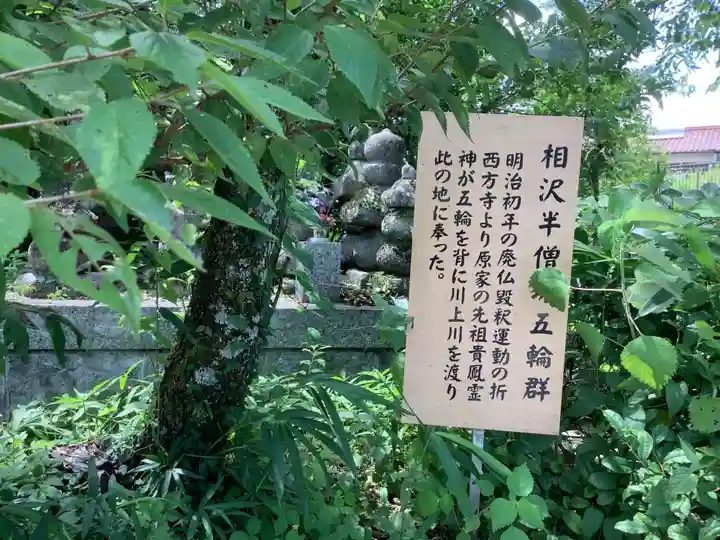 相沢半僧 五輪群
明治初年の廃仏毀釈運動の折
西方寺より原家の先祖貴鳳霊
神が五輪を背に川上川を渡り
此の地に奉った。